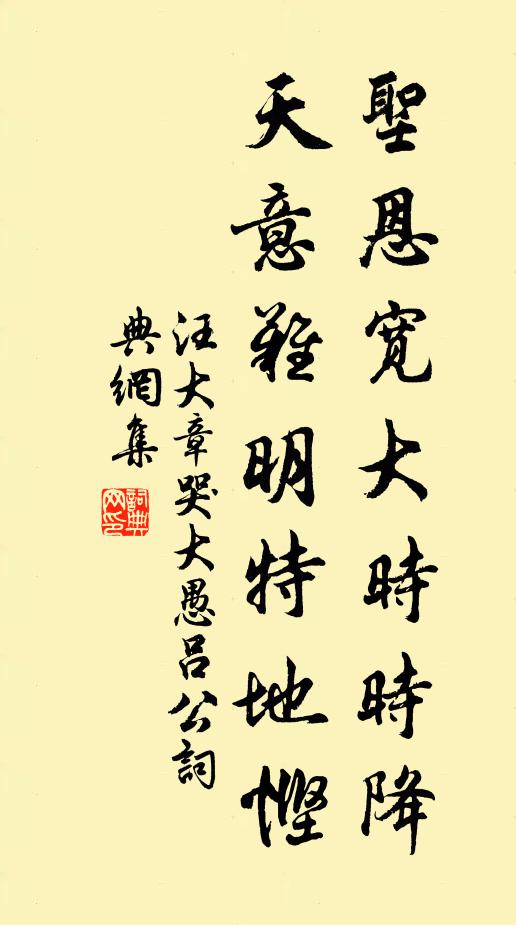 聖恩寬大時時降
天意難明特地慳
汪大章哭大愚呂公詞
典網集
詞典網印